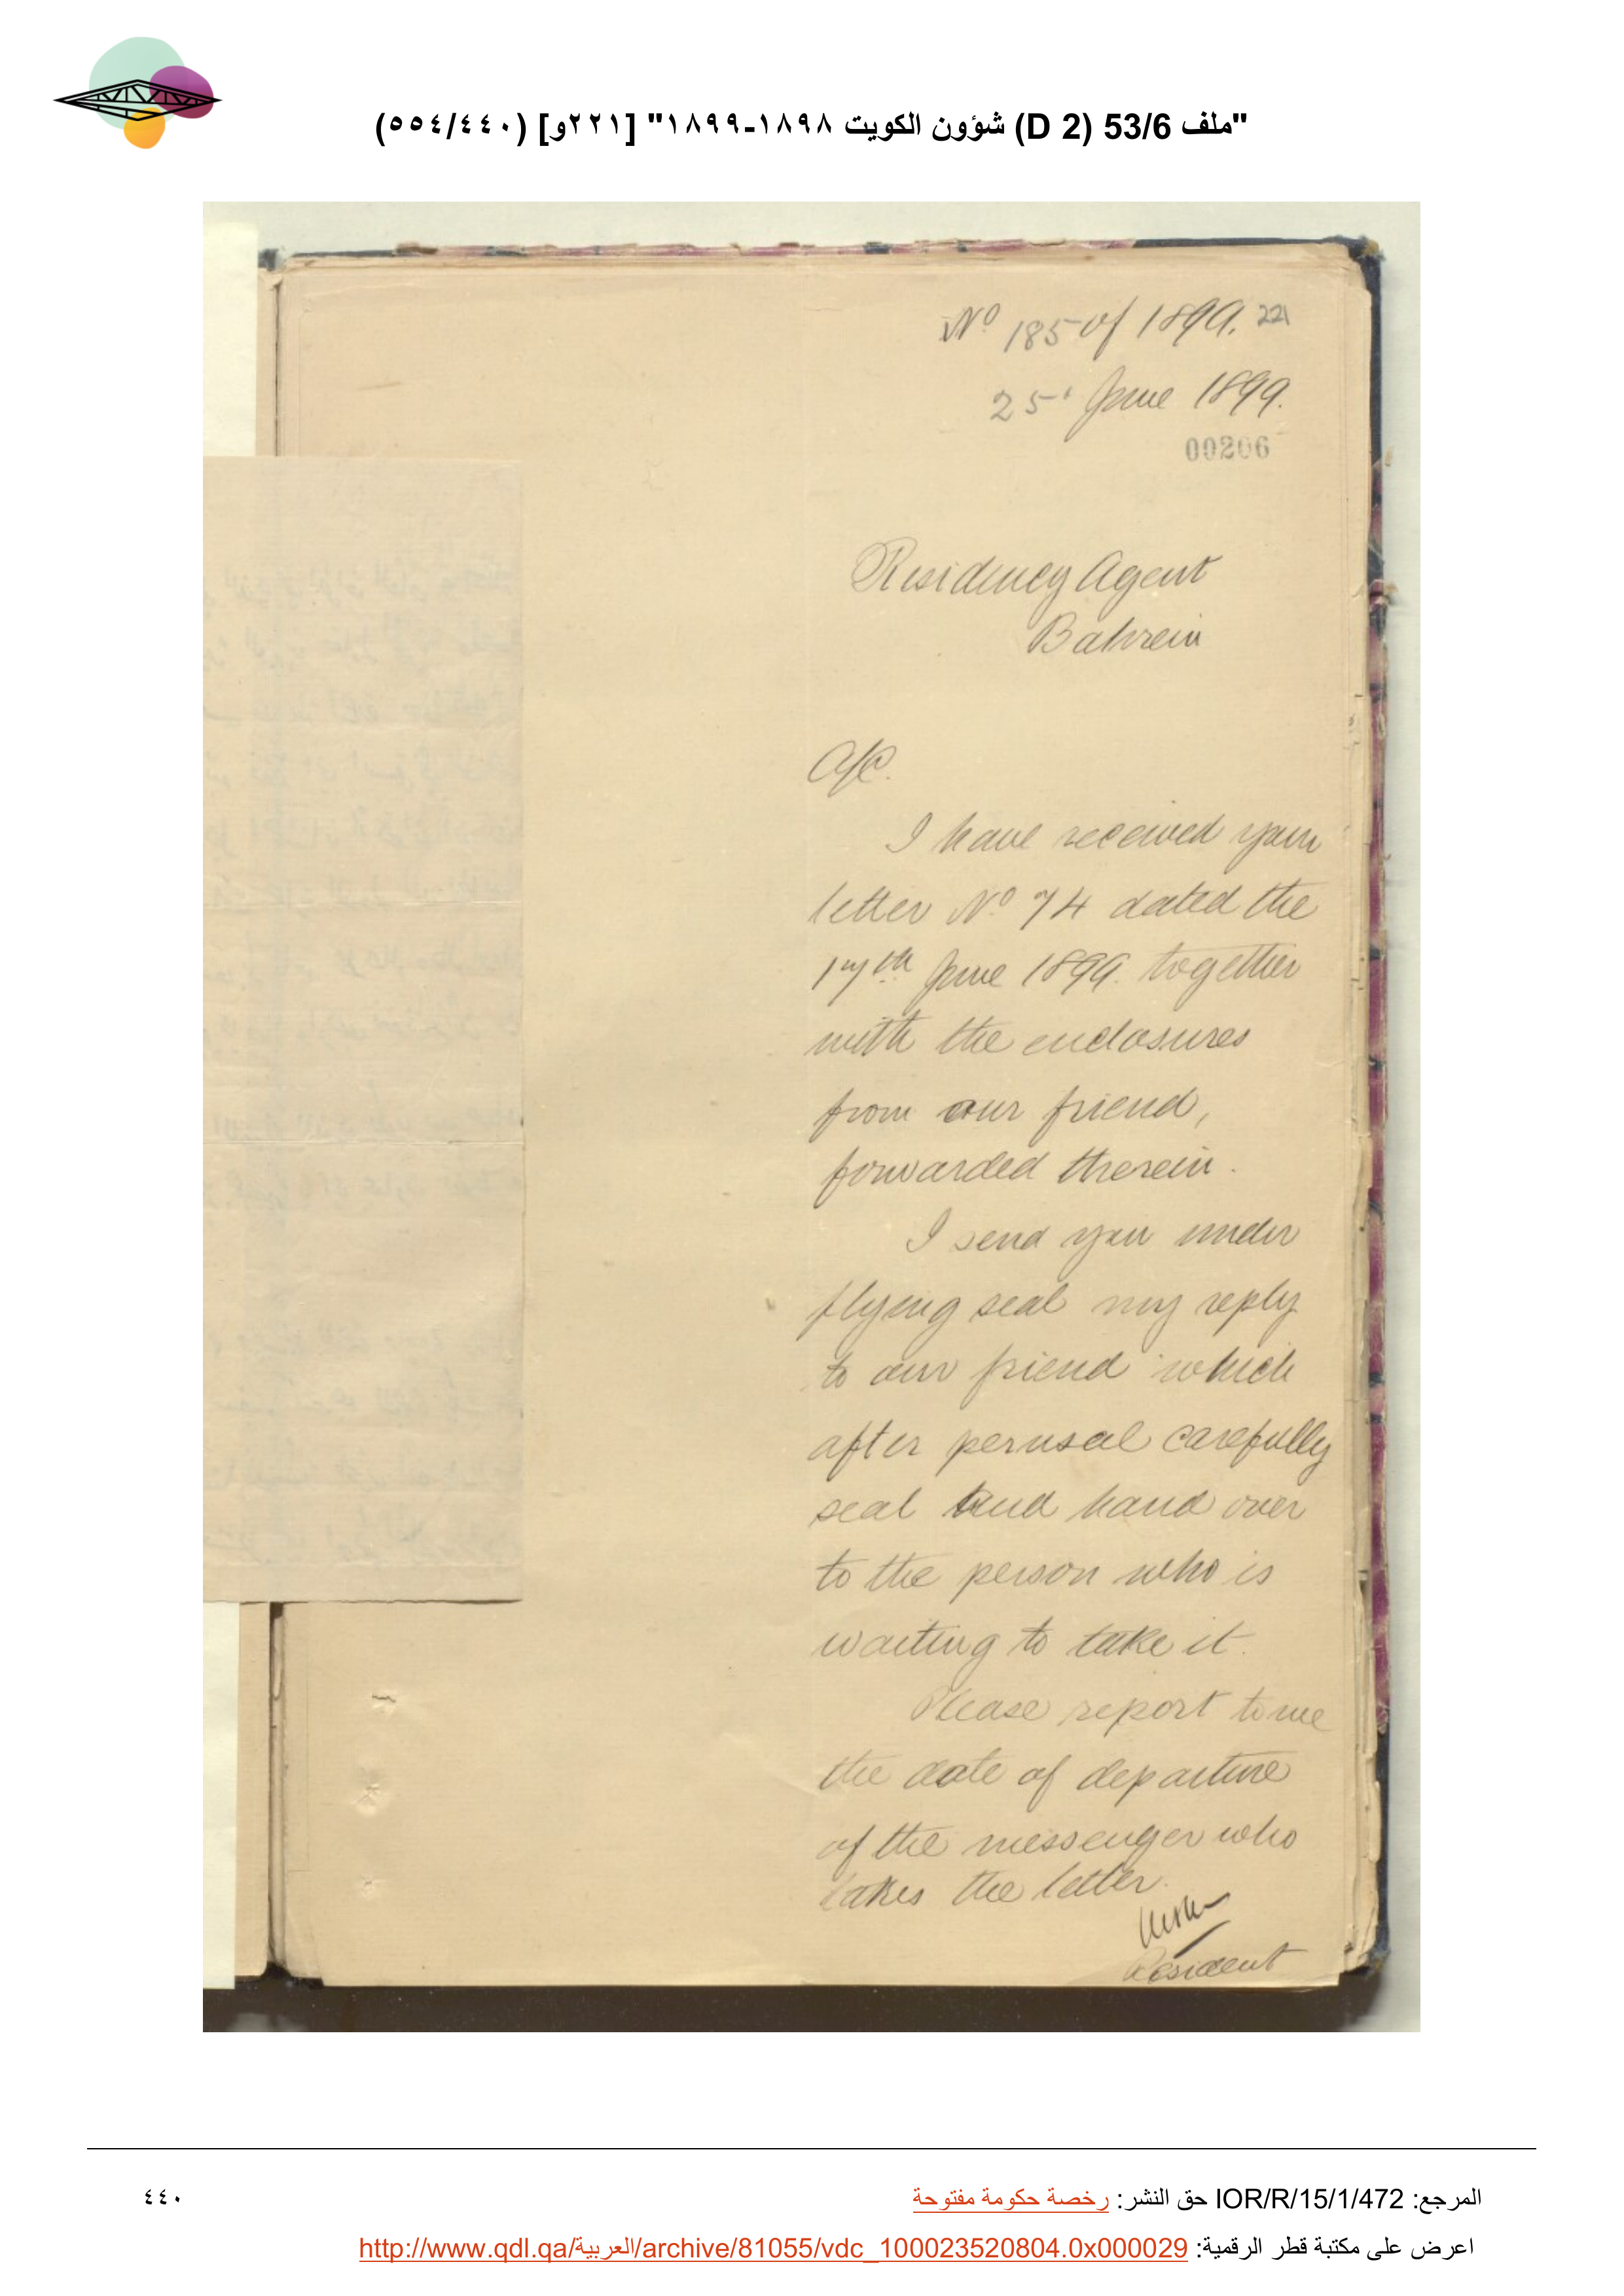 "ملف 53/6 (D 2) شؤون الكويت ١٨٩٨-١٨٩٩" [٢٢١و] (٥٥٤/٤٤٠)
No 185 of 1899. 221
25 June 1899.
00206
Residency Agent
Bahrein
A/C.
I have received your
letter No 74 dated the
17th June 1899. together
with the enclosures
from our friend,
forwarded therein.
I send you under
flying seal my reply
to our friend which
after perusal carefully
seal and hand over
to the person who is
waiting to take it.
Please report to me
the date of departure
of the messenger who
takes the letter.
Resident
المرجع: IOR/R/15/1/472 حق النشر: رخصة حكومة مفتوحة
٤٤٠
اعرض على مكتبة قطر الرقمية: http://www.qdl.qa/العربية/archive/81055/vdc_100023520804.0x000029